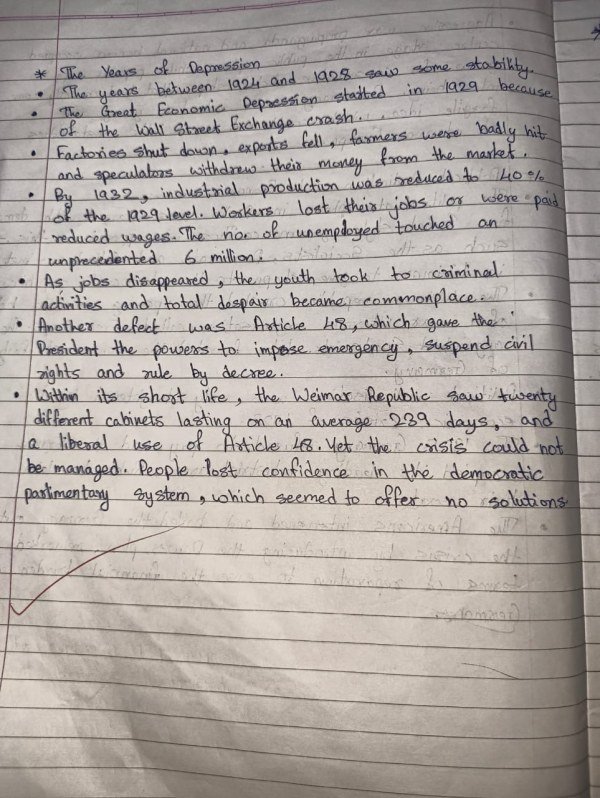 * The Years of Depression
• The years between 1924 and 1928 saw some stability.
• The Great Economic Depression started in 1929 because
of the Wall Street Exchange crash.
• Factories shut down, exports fell, farmers were badly hit
and speculators withdrew their money from the market.
• By 1932, industrial production was reduced to 40%
of the 1929 level. Workers lost their jobs or were paid
reduced wages. The no. of unemployed touched an
unprecedented 6 million.
• As jobs disappeared, the youth took to criminal
activities and total despair became commonplace.
• Another defect was Article 48, which gave the
President the powers to impose emergency, suspend civil
rights and rule by decree.
• Within its short life, the Weimar Republic saw twenty
different cabinets lasting on an average 239 days, and
a liberal use of Article 48. Yet the crisis could not
be managed. People lost confidence in the democratic
parlimentary system, which seemed to offer no solutions.